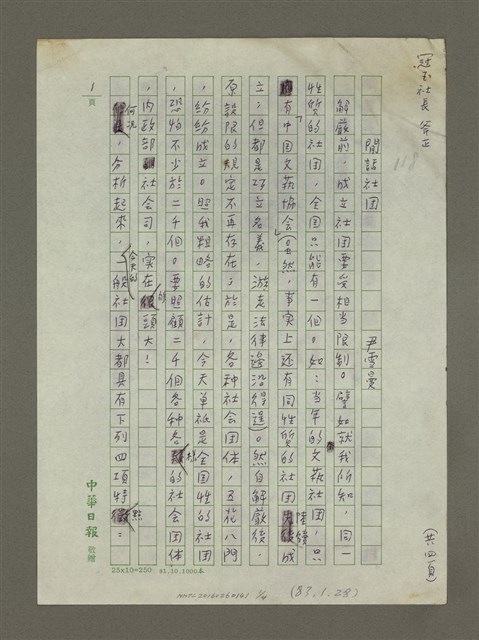 冠玉社長 斧正
118
閒話社団
尹雪曼
解嚴前，成立社团要受相当限制。譬如就我所知，同一
性質的社团，全国只能有一個。如：当年的文藝社团，只
有「中国文藝協会」（当然，事実上还有同性質的社团陸續成
立；但都是
立名義，游走法律邊沿得逞）。然自解嚴後，
原設限的規定不再存在；於是，各种社会团体，五花八門
，紛紛成立。照我粗略的估計，今天單祇是全国性的社团
，恐怕不少於二千個。要照顧二千個各种各樣的社会团体
，内政部社会司，实在够頭大！
何况，分析起來，今天的一般社团大都具有下列四項特點：
1頁
中華日報 敬贈
25x10=250 81.10.1000本
(共四頁)
(83.1.28)
NMTL20160260161 1/4